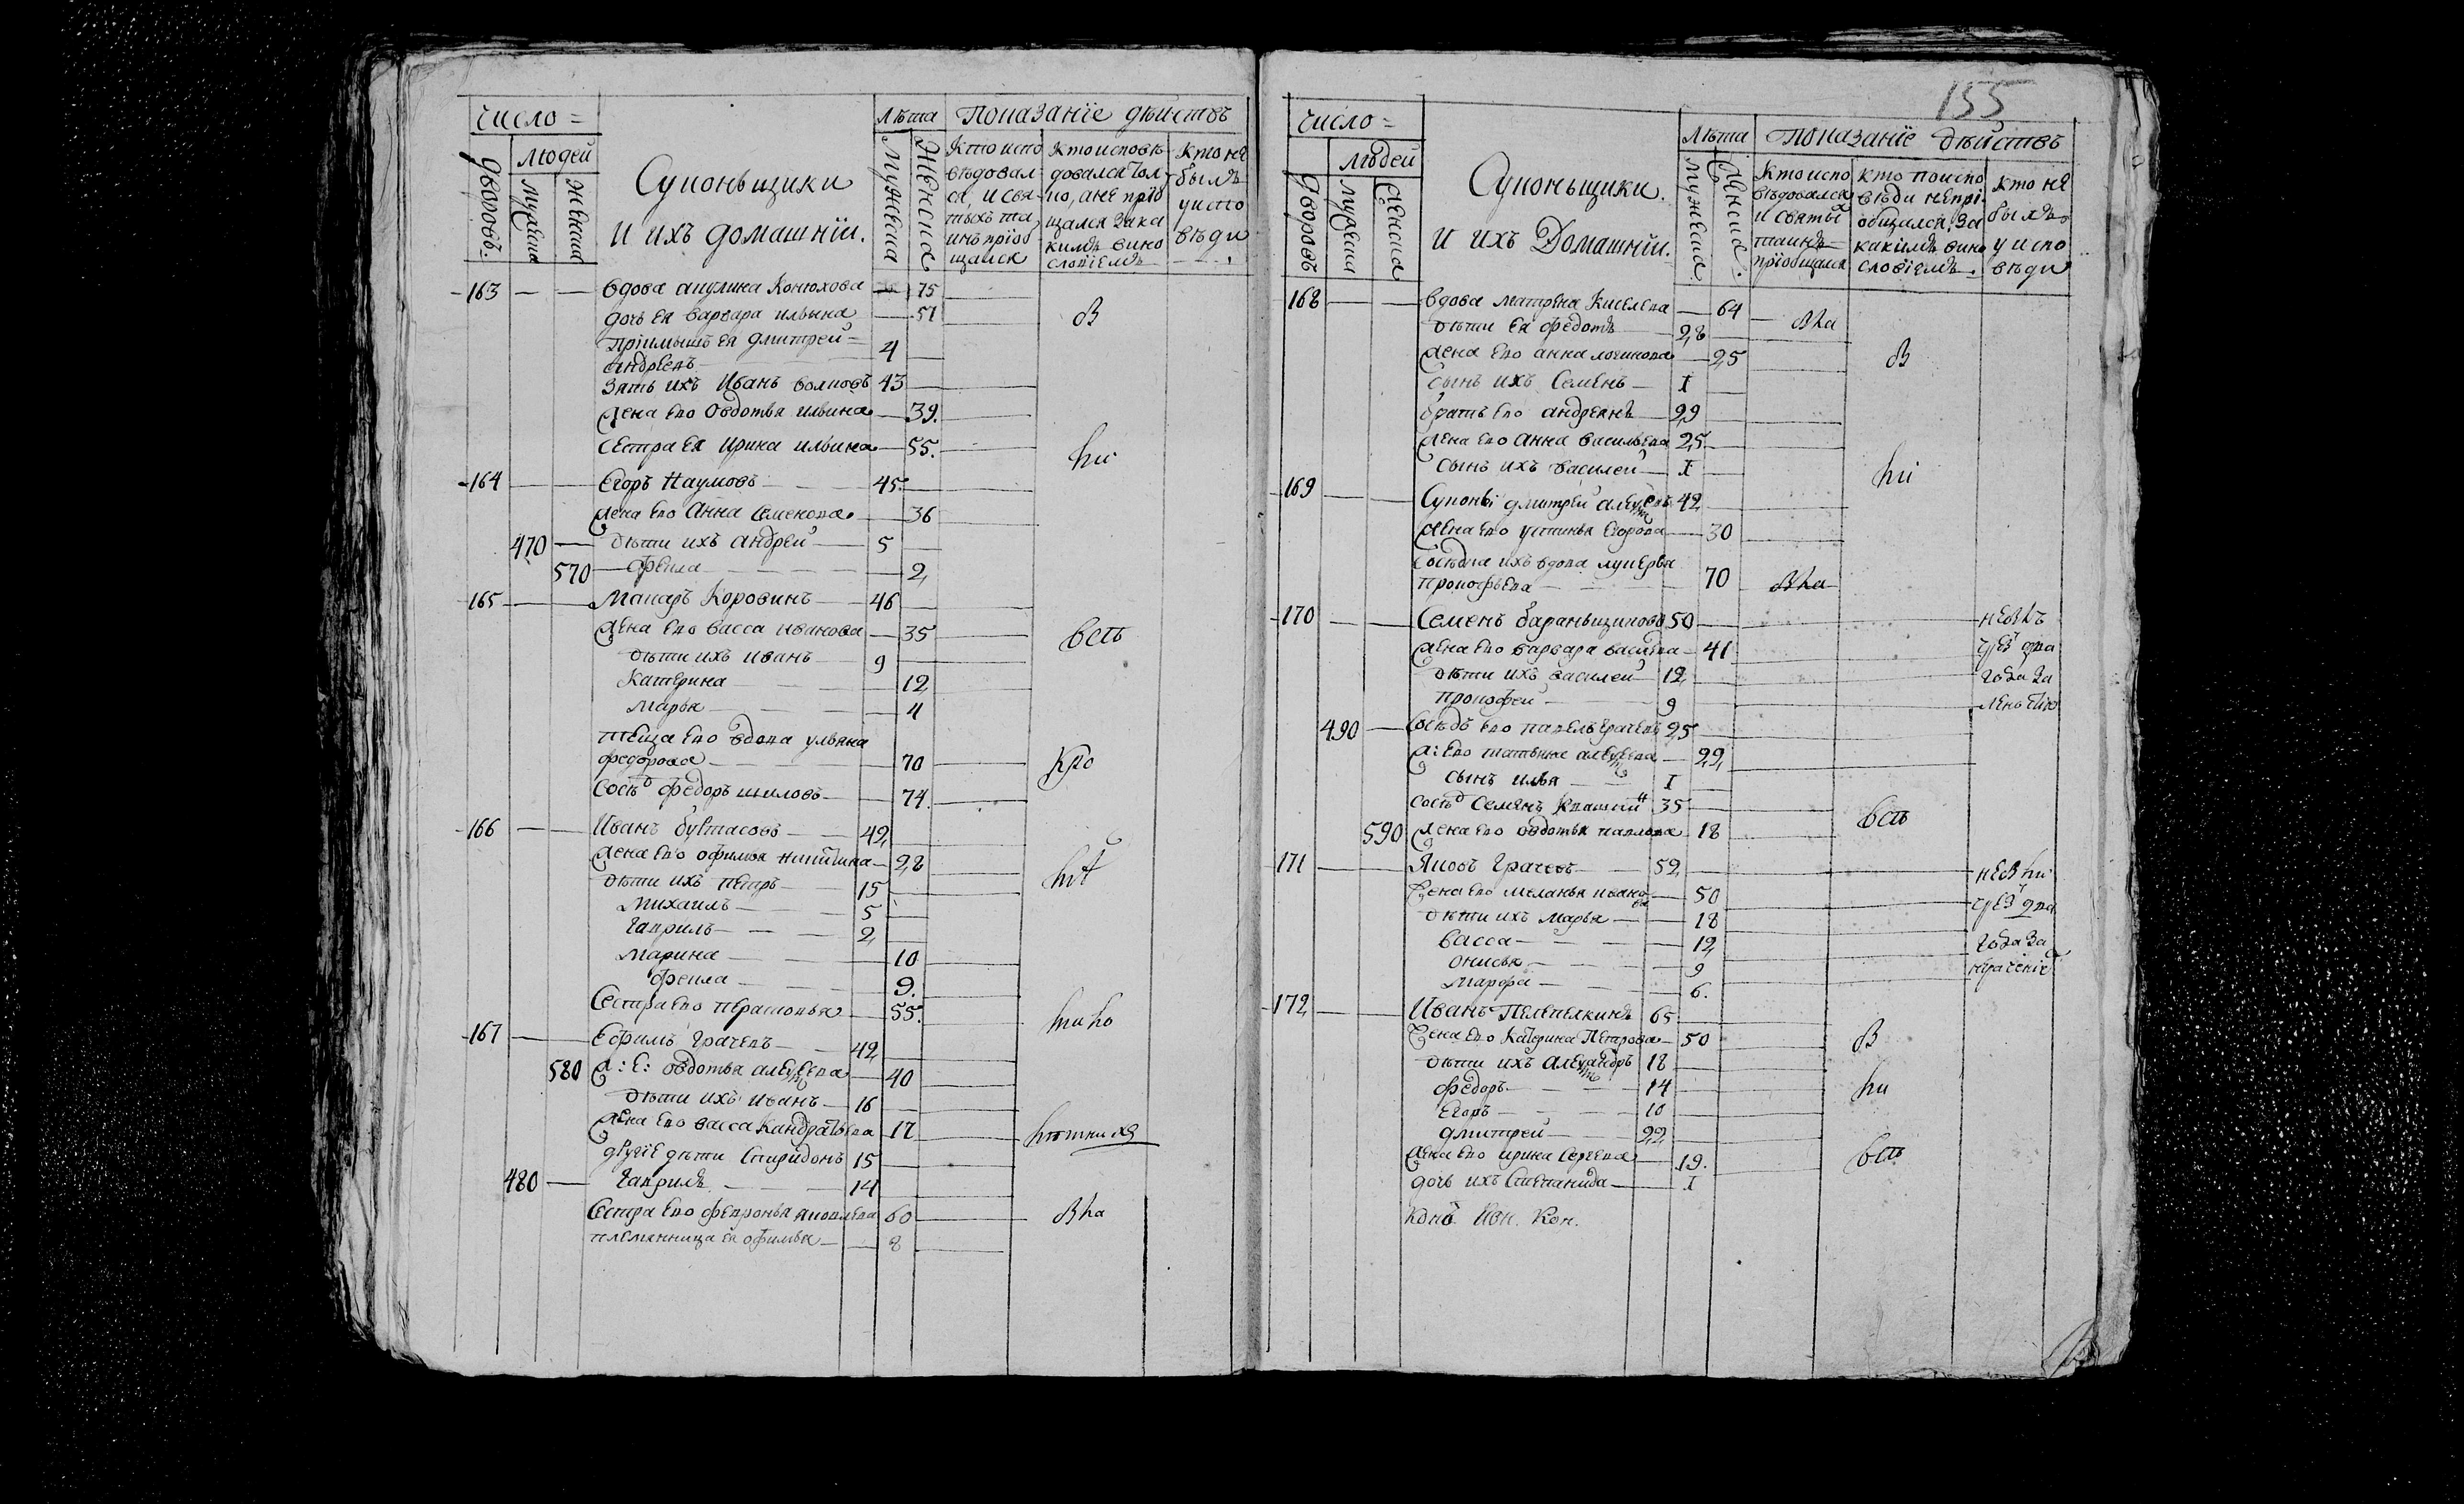 число =
людей
дворовъ.
мужеска
женска
Супоньщики
и ихъ домашнїи.
лѣта
мужеска
женска
показанїе дѣйствъ
кто испо
вѣдовал
ся, и свя-
тыхъ та
инъ прїоб
щался
кто исповѣ
довался тол
ко, а не прїоб
щался за ка
кимъ вино
словїемъ
кто не
былъ
у испо
вѣди
163 вдова акулина Конюхова 75
дочь ея варвара ильина 51
прїимышъ ея дмитрей
андреевъ 4
зять ихъ Иванъ волковъ 43
жена его овдотья ильина 39.
сестра ея ирина ильина 55.
164 Егоръ Наумовъ 45
жена его Анна семенова 36
470 дѣти ихъ андрей 5
570 фекла 2
165 Макаръ Коровинъ 46
жена его васса иванова 35
дѣти ихъ иванъ 9
катерина 12
марья 4
теща его вдова ульяна
федорова 70
сосѣд федоръ шиловъ 74.
166 Иванъ 42
жена его офимья никитина 28
дѣти ихъ петръ 15
михаилъ 5
гаврилъ 2
марина 10
фекла 9.
сестра его парасковья 55.
167 Ефимъ Грачевъ 42
580 ж: е: овдотья алеѯеева 40
дѣти ихъ иванъ 16
жена его васса кандратьева 17
другїе дѣти спиридонъ 15
480 гаврилъ 14
сестра его февронья яковлева 60
племянница ея офимья 8
155
число =
людей
дворовъ
мужеска
женска
Супоньщики.
и ихъ Домашнїи.
лѣта
мужеска.
женска.
показанїе дѣйствъ
кто испо
вѣдовался
и святы
таинъ
прїобщался
кто по испо
вѣди не прі
общался, за
какимъ вино
словїемъ.
кто не
былъ
у испо
вѣди
168 вдова матрена Киселева 64
дѣти ея федотъ 28
жена его анна логинова 25
сынъ ихъ Семенъ I
братъ его андреянъ 29
жена его Анна васильева 25
сынъ ихъ василей I
169 дмитрей алеѯеевъ 42
жена его устинья Егорова 30
сосѣдка ихъ вдова лукерья
прокофьева 70
170 Семенъ бараньщиковъ 50
жена его варвара васильева 41
дѣти ихъ василей 12
прокофей 9
490 сосѣдъ его павелъ грачевъ 25
ж: его татьяна алеѯеева 22
сынъ илья I
сосѣд Семенъ 35
590 жена его овдотья павлова 18
171 Яковъ Грачевъ 52
жена его меланья иванова 50
дѣти ихъ марья 18
васса 12
онисья 9
марфа 6.
чрез два
года за
172 Иванъ Пелепелкинъ 65
жена его катерина Петрова 50
дѣти ихъ алеѯандръ 18
федоръ 14
егоръ 10
дмитрей 22
жена его ирина сергеева 19.
дочь ихъ степанида I